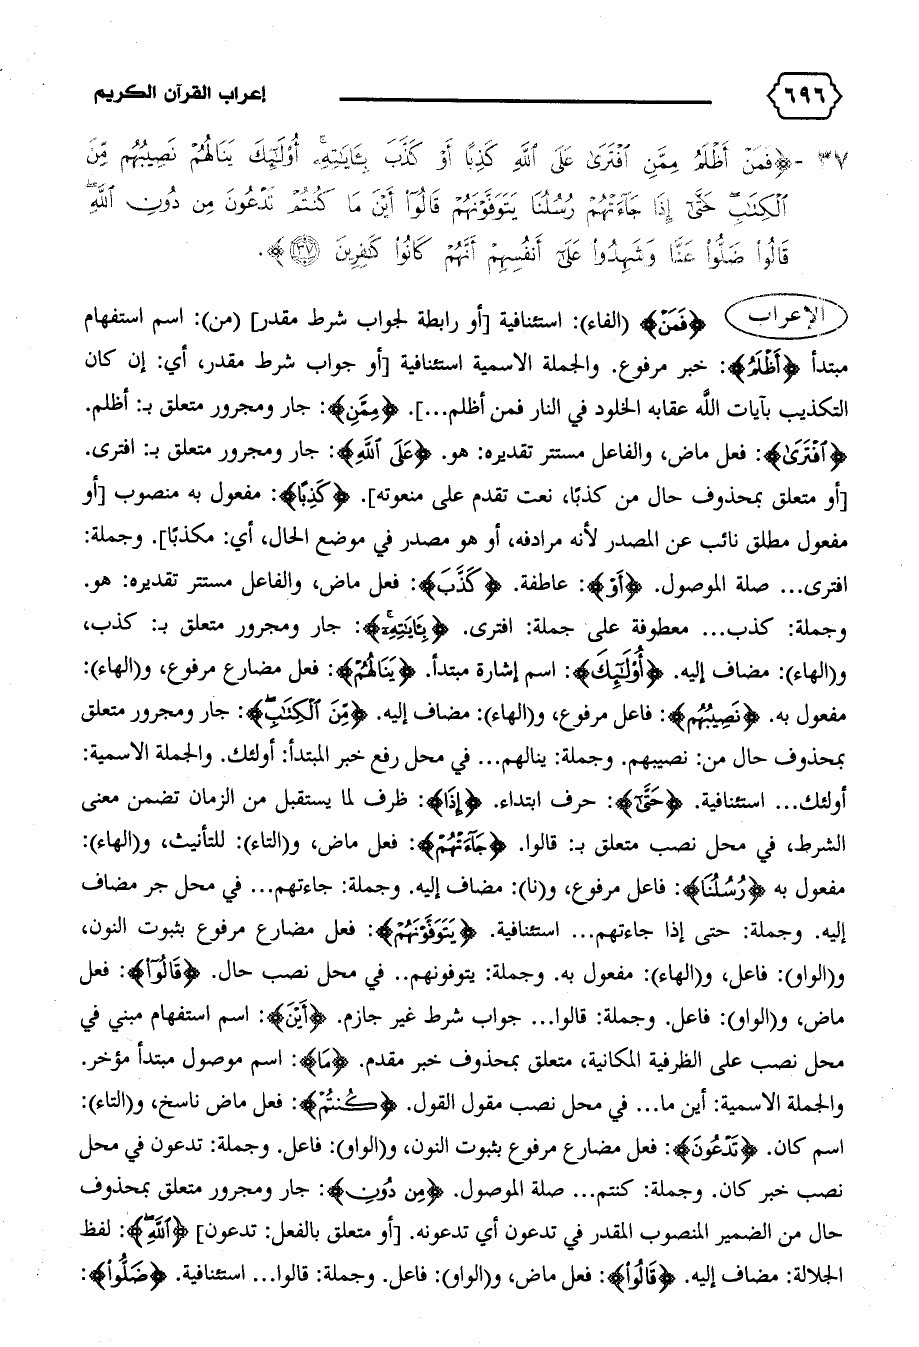 ٦٩٦ إعراب القرآن الكريم
٣٧ - ﴿فَمَنْ أَظْلَمُ مِمَّنِ ٱفْتَرَىٰ عَلَى ٱللَّهِ كَذِبًا أَوْ كَذَّبَ بِـَٔايَـٰتِهِۦٓ ۚ أُو۟لَـٰٓئِكَ يَنَالُهُمْ نَصِيبُهُم مِّنَ
ٱلْكِتَـٰبِ ۖ حَتَّىٰٓ إِذَا جَآءَتْهُمْ رُسُلُنَا يَتَوَفَّوْنَهُمْ قَالُوٓا۟ أَيْنَ مَا كُنتُمْ تَدْعُونَ مِن دُونِ ٱللَّهِ ۖ
قَالُوا۟ ضَلُّوا۟ عَنَّا وَشَهِدُوا۟ عَلَىٰٓ أَنفُسِهِمْ أَنَّهُمْ كَانُوا۟ كَـٰفِرِينَ ٣٧﴾.
الإعراب ﴿فَمَنْ﴾ (الفاء): استئنافية [أو رابطة لجواب شرط مقدر] (من): اسم استفهام
مبتدأ ﴿أَظْلَمُ﴾: خبر مرفوع. والجملة الاسمية استئنافية [أو جواب شرط مقدر، أي: إن كان
التكذيب بآيات اللَّه عقابه الخلود في النار فمن أظلم...]. ﴿مِمَّنِ﴾: جار ومجرور متعلق بـ: أظلم.
﴿ٱفْتَرَىٰ﴾: فعل ماض، والفاعل مستتر تقديره: هو. ﴿عَلَى ٱللَّهِ﴾: جار ومجرور متعلق بـ: افترى.
[أو متعلق بمحذوف حال من كذبًا، نعت تقدم على منعوته]. ﴿كَذِبًا﴾: مفعول به منصوب [أو
مفعول مطلق نائب عن المصدر لأنه مرادفه، أو هو مصدر في موضع الحال، أي: مكذبًا]. وجملة:
افترى... صلة الموصول. ﴿أَوْ﴾: عاطفة. ﴿كَذَّبَ﴾: فعل ماض، والفاعل مستتر تقديره: هو.
وجملة: كذب... معطوفة على جملة: افترى. ﴿بِـَٔايَـٰتِهِۦٓ ۚ﴾: جار ومجرور متعلق بـ: كذب،
و(الهاء): مضاف إليه. ﴿أُو۟لَـٰٓئِكَ﴾: اسم إشارة مبتدأ. ﴿يَنَالُهُمْ﴾: فعل مضارع مرفوع، و(الهاء):
مفعول به. ﴿نَصِيبُهُم﴾: فاعل مرفوع، و(الهاء): مضاف إليه. ﴿مِّنَ ٱلْكِتَـٰبِ ۖ﴾: جار ومجرور متعلق
بمحذوف حال من: نصيبهم. وجملة: ينالهم... في محل رفع خبر المبتدأ: أولئك. والجملة الاسمية:
أولئك... استئنافية. ﴿حَتَّىٰٓ﴾: حرف ابتداء. ﴿إِذَا﴾: ظرف لما يستقبل من الزمان تضمن معنى
الشرط، في محل نصب متعلق بـ: قالوا. ﴿جَآءَتْهُمْ﴾: فعل ماض، و(التاء): للتأنيث، و(الهاء):
مفعول به ﴿رُسُلُنَا﴾: فاعل مرفوع، و(نا): مضاف إليه. وجملة: جاءتهم... في محل جر مضاف
إليه. وجملة: حتى إذا جاءتهم... استئنافية. ﴿يَتَوَفَّوْنَهُمْ﴾: فعل مضارع مرفوع بثبوت النون،
و(الواو): فاعل، و(الهاء): مفعول به. وجملة: يتوفونهم.. في محل نصب حال. ﴿قَالُوٓا۟﴾: فعل
ماض، و(الواو): فاعل. وجملة: قالوا... جواب شرط غير جازم. ﴿أَيْنَ﴾: اسم استفهام مبني في
محل نصب على الظرفية المكانية، متعلق بمحذوف خبر مقدم. ﴿مَا﴾: اسم موصول مبتدأ مؤخر.
والجملة الاسمية: أين ما... في محل نصب مقول القول. ﴿كُنتُمْ﴾: فعل ماض ناسخ، و(التاء):
اسم كان. ﴿تَدْعُونَ﴾: فعل مضارع مرفوع بثبوت النون، و(الواو): فاعل. وجملة: تدعون في محل
نصب خبر كان. وجملة: كنتم... صلة الموصول. ﴿مِن دُونِ﴾: جار ومجرور متعلق بمحذوف
حال من الضمير المنصوب المقدر في تدعون أي تدعونه. [أو متعلق بالفعل: تدعون] ﴿ٱللَّهِ ۖ﴾: لفظ
الجلالة: مضاف إليه. ﴿قَالُوا۟﴾: فعل ماض، و(الواو): فاعل. وجملة: قالوا... استئنافية. ﴿ضَلُّوا۟﴾: